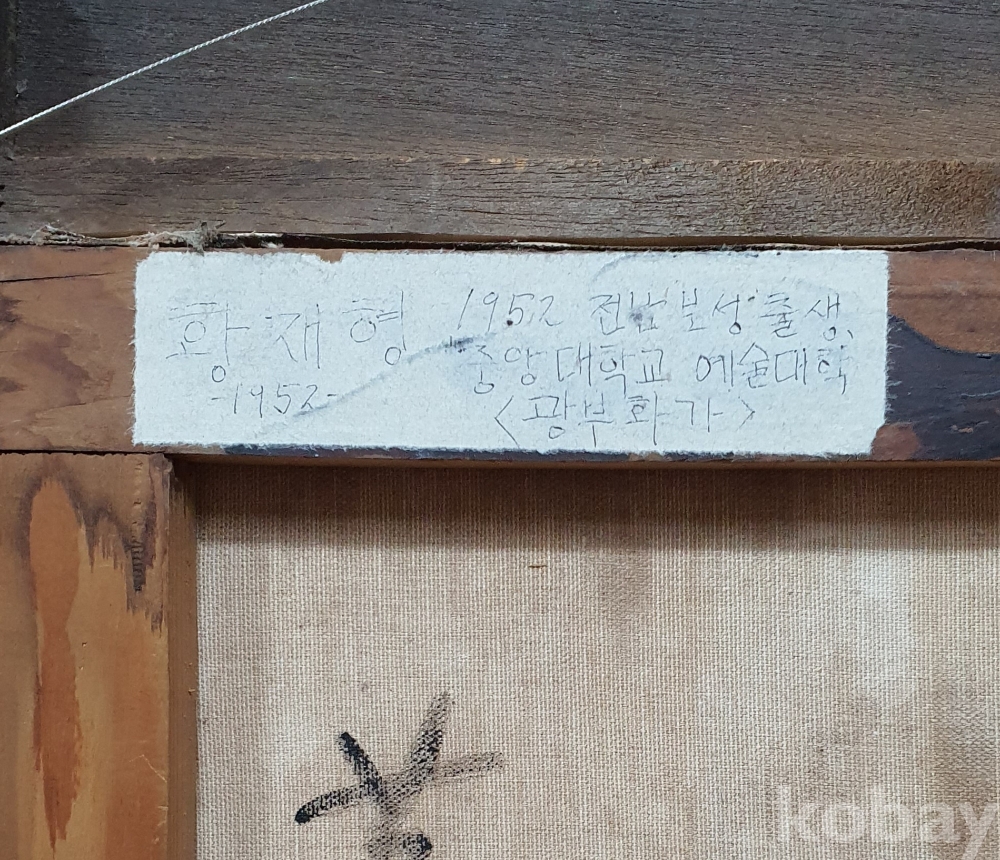 황재형
-1952-
1952 전남보성출생,
중앙대학교 예술대학
<광부화가>
kobay